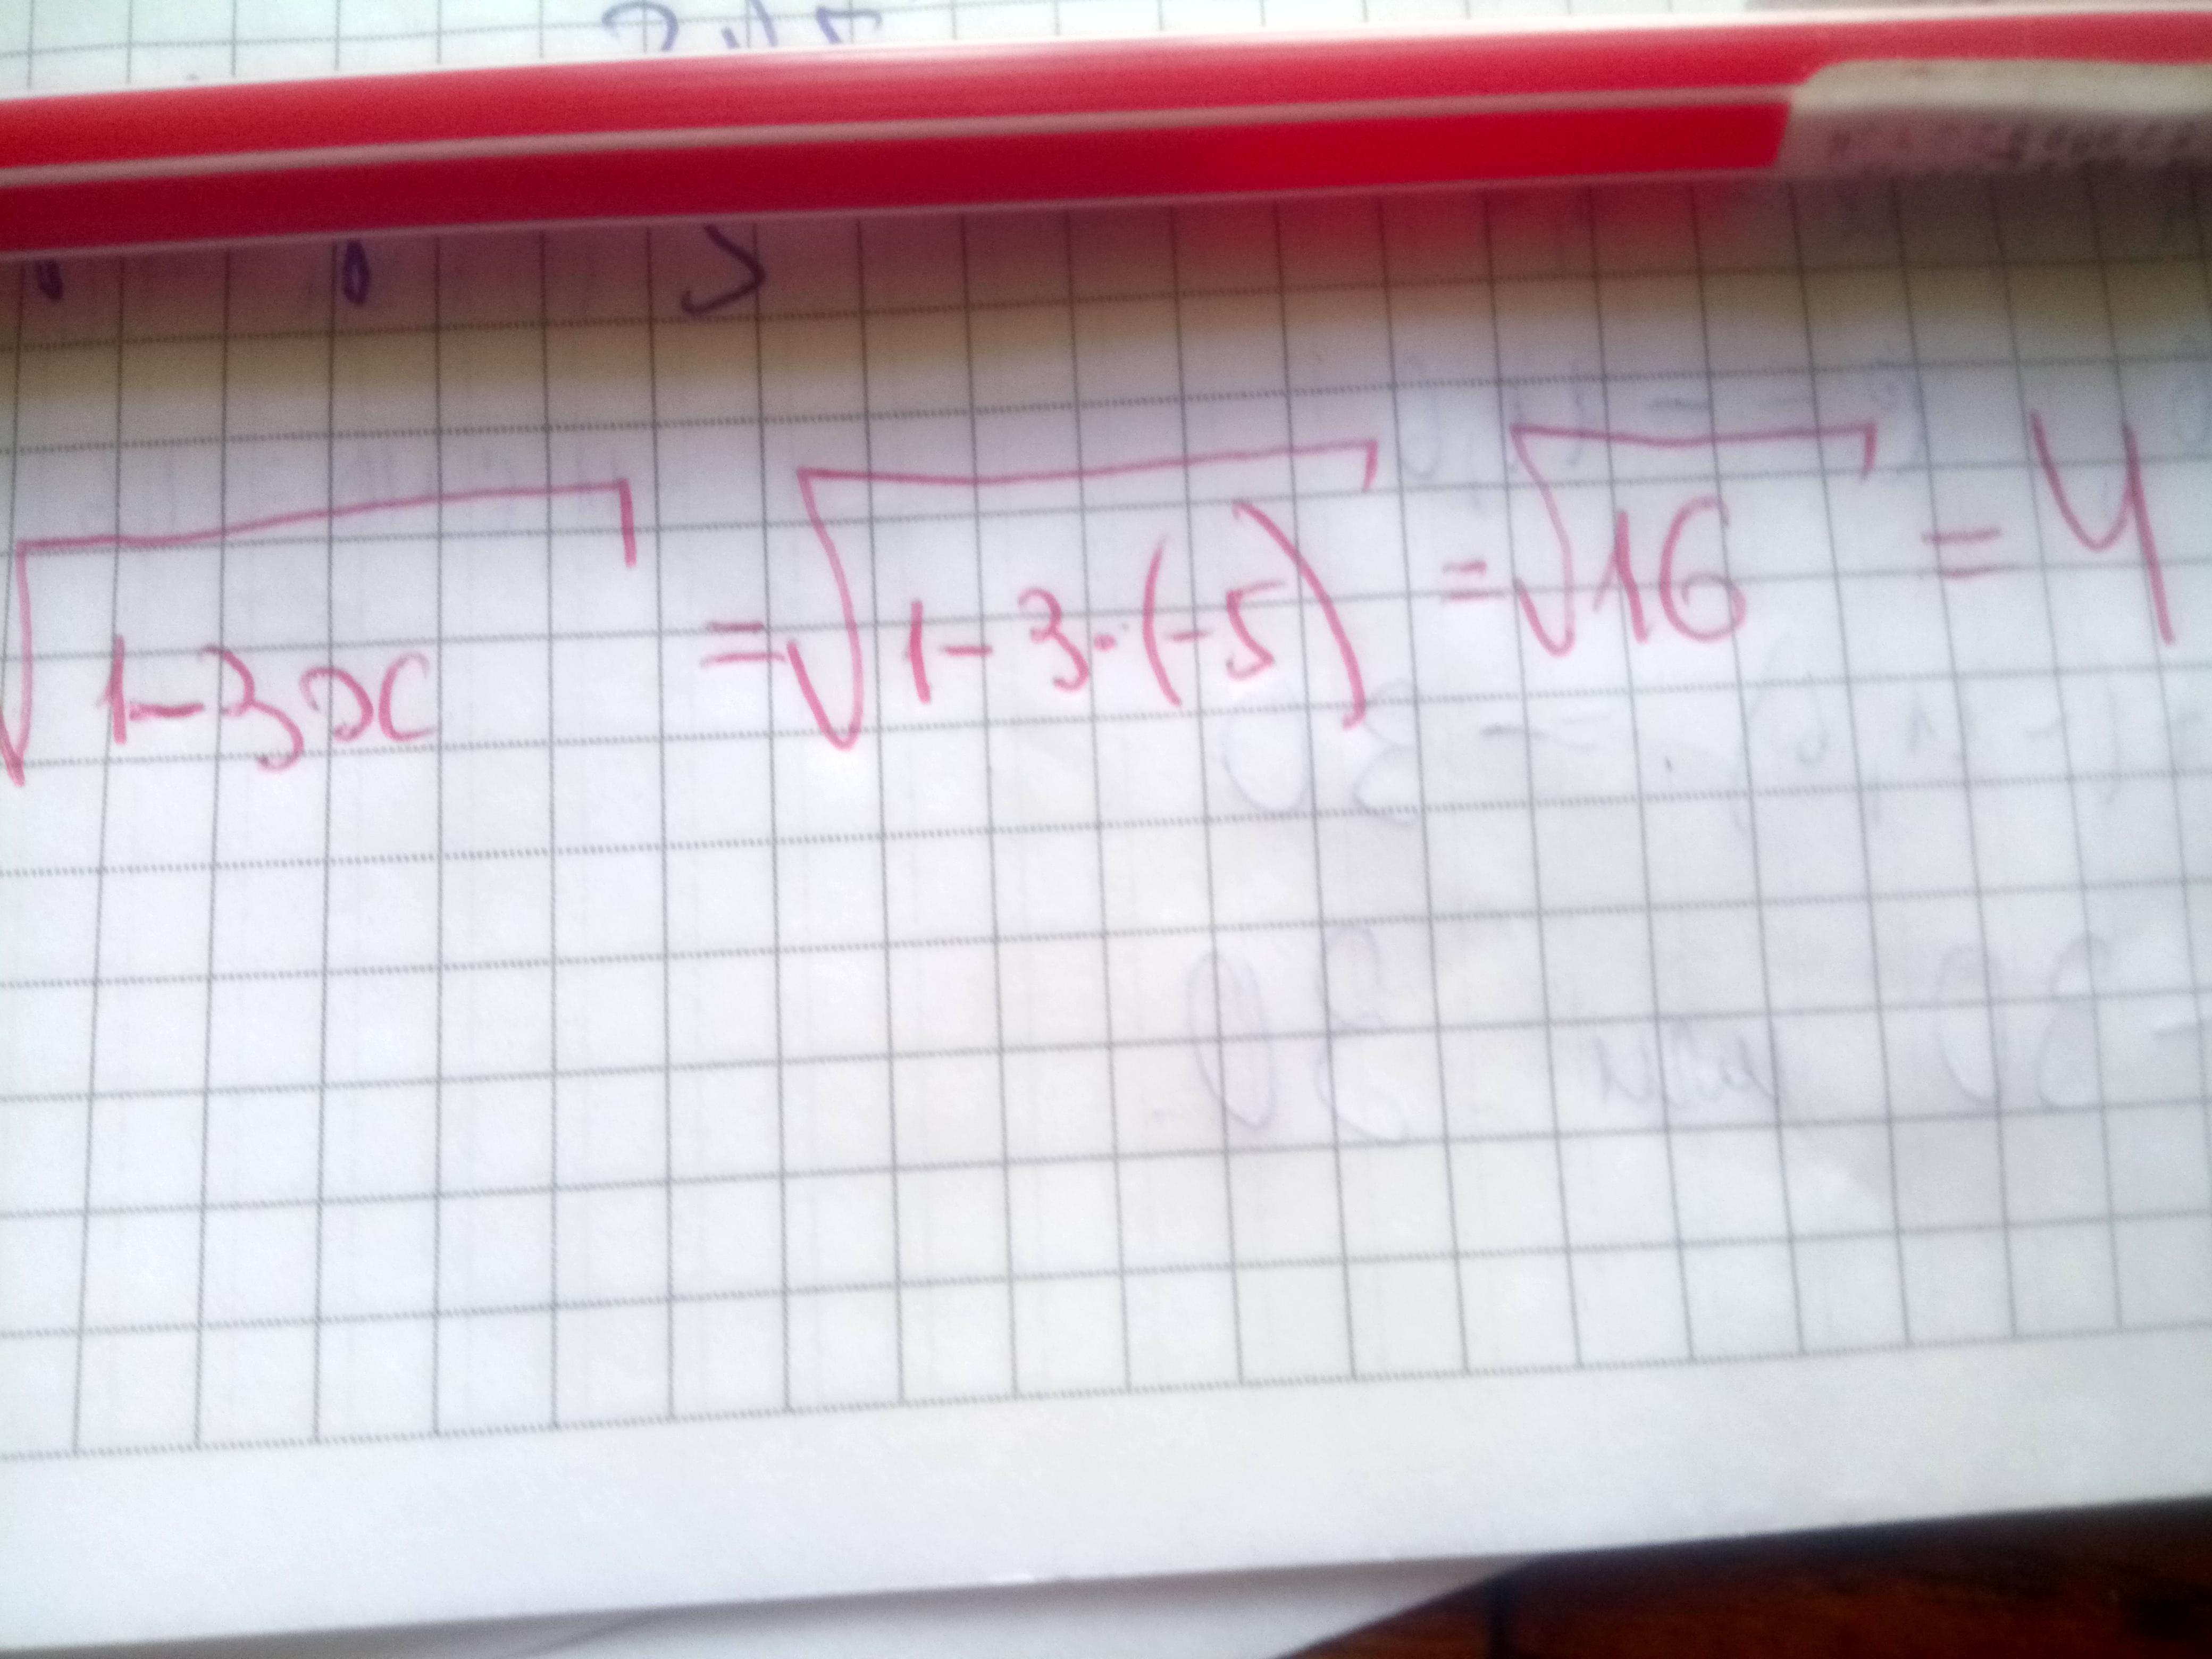 √1-3x = √1-3·(-5) = √16 = 4